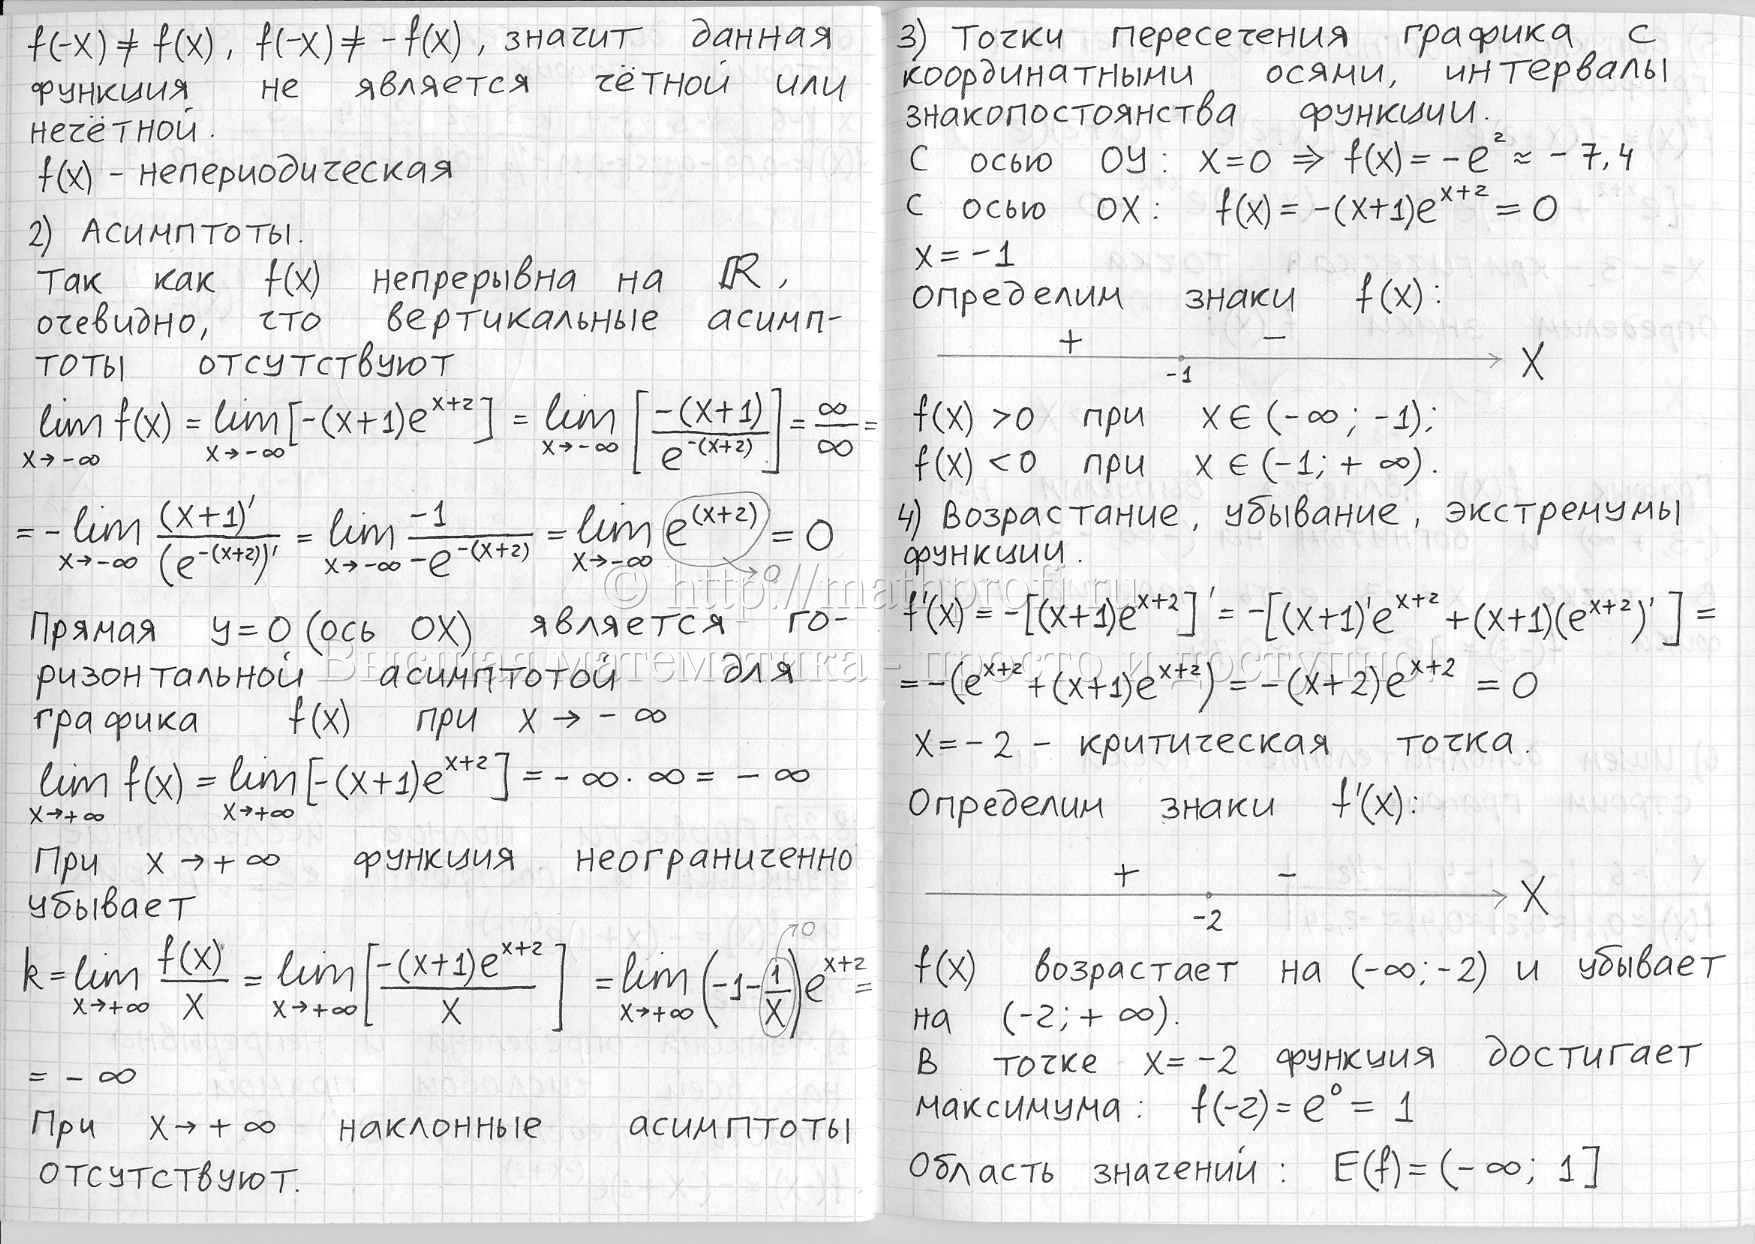 f(-x) ≠ f(x), f(-x) ≠ -f(x), значит данная
функция не является чётной или
нечётной.
f(x) - непериодическая
2) Асимптоты.
Так как f(x) непрерывна на ℝ,
очевидно, что вертикальные асимп-
тоты отсутствуют
lim x→-∞ f(x) = lim x→-∞ [-(x+1)e^(x+2)] = lim x→-∞ [-(x+1)/e^(-(x+2))] = ∞/∞ =
= -lim x→-∞ (x+1)'/(e^(-(x+2)))' = lim x→-∞ -1/-e^(-(x+2)) = lim x→-∞ e^(x+2) →0 = 0
Прямая y=0 (ось OX) является го-
ризонтальной асимптотой для
графика f(x) при x→-∞
lim x→+∞ f(x) = lim x→+∞ [-(x+1)e^(x+2)] = -∞·∞ = -∞
При x→+∞ функция неограниченно
убывает
k = lim x→+∞ f(x)/x = lim x→+∞ [-(x+1)e^(x+2)/x] = lim x→+∞ (-1-1/x →0)e^(x+2) =
= -∞
При x→+∞ наклонные асимптоты
отсутствуют.
3) Точки пересечения графика с
координатными осями, интервалы
знакопостоянства функции.
С осью OY: x=0 ⇒ f(x) = -e² ≈ -7,4
С осью OX: f(x) = -(x+1)e^(x+2) = 0
x = -1
Определим знаки f(x):
+ -
-1 X
f(x) >0 при x ∈ (-∞; -1);
f(x) <0 при x ∈ (-1; +∞).
4) Возрастание, убывание, экстремумы
функции.
f'(x) = -[(x+1)e^(x+2)]' = -[(x+1)'e^(x+2) + (x+1)(e^(x+2))'] =
= -(e^(x+2) + (x+1)e^(x+2)) = -(x+2)e^(x+2) = 0
x = -2 - критическая точка.
Определим знаки f'(x):
+ -
-2 X
f(x) возрастает на (-∞; -2) и убывает
на (-2; +∞).
В точке x = -2 функция достигает
максимума: f(-2) = e⁰ = 1
Область значений: E(f) = (-∞; 1]
© http://mathprofi.ru
Высшая математика - просто и доступно!